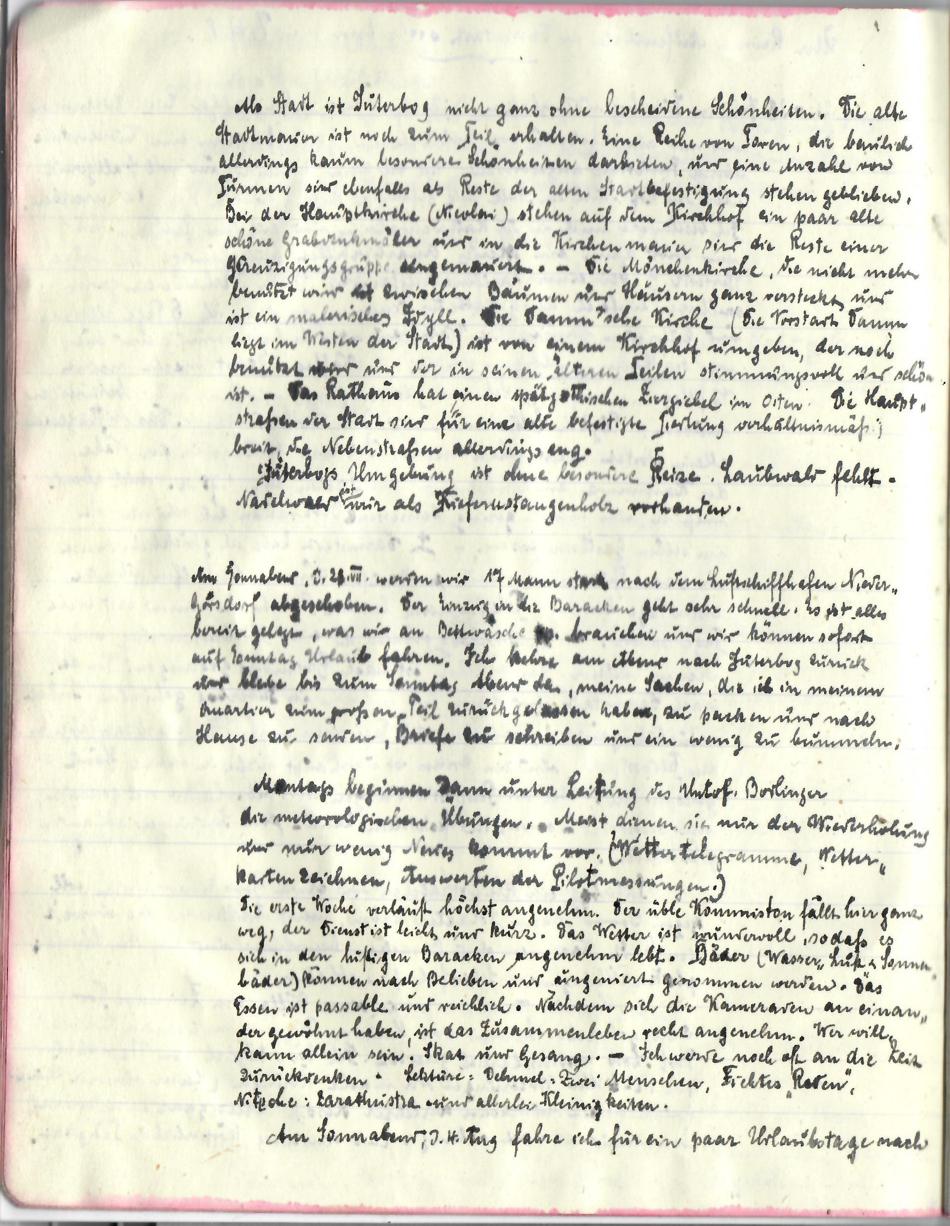 Als Stadt ist Jüterbog nicht ganz ohne bescheidene Schönheiten. Die alte
Stadtmauer ist noch zum Teil erhalten. Eine Reihe von Toren, die baulich
allerdings kaum besondere Schönheiten darbieten, und eine Anzahl von
Türmen sind ebenfalls als Reste der alten Stadtbefestigung stehen geblieben.
Bei der Hauptkirche (Nicolai) stehen auf dem Kirchhof ein paar alte
schöne Grabdenkmäler und in die Kirchenmauer sind die Reste einer
Kreuzigungsgruppe eingemauert. – Die Mönchenkirche, die nicht mehr
benützt wird ist zwischen Bäumen und Häusern ganz versteckt und
ist ein malerisches Idyll. Die Damm'sche Kirche (die Vorstadt Damm
liegt im Westen der Stadt) ist von einem Kirchhof umgeben, der noch
benützt wird und der in seinen älteren Teilen stimmungsvoll und schön
ist. – Das Rathaus hat einen spätgothischen Ziergiebel im Osten. Die Haupt„
straßen der Stadt sind für eine alte befestigte Siedlung verhältnismäßig
breit, die Nebenstraßen allerdings eng.
Jüterbogs Umgebung ist ohne besondere Reize. Laubwald fehlt.
Nadelwald ist nur als Kiefernstangenholz vorhanden.
Am Sonnabend, d. 28. VII. werden wir 17 Mann stark nach dem Luftschiffhafen Nieder„
görsdorf abgeschoben. Der Einzug in die Baracken geht sehr schnell. Es ist alles
bereit gelegt, was wir an Bettwäsche pp. brauchen und wir können sofort
auf Sonntag Urlaub fahren. Ich kehre am Abend nach Jüterbog zurück
und bleibe bis zum Sonntag Abend da, meine Sachen, die ich in meinem
Quartier zum großen Teil zurückgelassen habe, zu packen und nach
Hause zu senden, Briefe zu schreiben und ein wenig zu bummeln.
Montags beginnen dann unter Leitung des Untof. Borlinger
die meteorologischen Übungen. Meist dienen sie nur der Wiederholung
und nur wenig Neues kommt vor. (Wettertelegramme, Wetter„
karten zeichnen, Auswerten der Pilotmessungen.)
Die erste Woche verläuft höchst angenehm. Der üble Kommiston fällt hier ganz
weg, der Dienst ist leicht und kurz. Das Wetter ist wundervoll, sodaß es
sich in den luftigen Baracken angenehm lebt. Bäder (Wasser„ Luft u. Sonnen
bäder) können nach Belieben und ungeniert genommen werden. Das
Essen ist passable und reichlich. Nachdem sich die Kameraden an einan„
der gewöhnt haben, ist das Zusammenleben recht angenehm. Wer will„
kann allein sein. Skat und Gesang. – Ich werde noch oft an die Zeit
zurückdenken. Lektüre: Dehmel: Zwei Menschen, Fichtes „Reden",
Nitzsche: Zarathustra und allerlei Kleinigkeiten.
Am Sonnabend, d. 4. Aug fahre ich für ein paar Urlaubstage nach